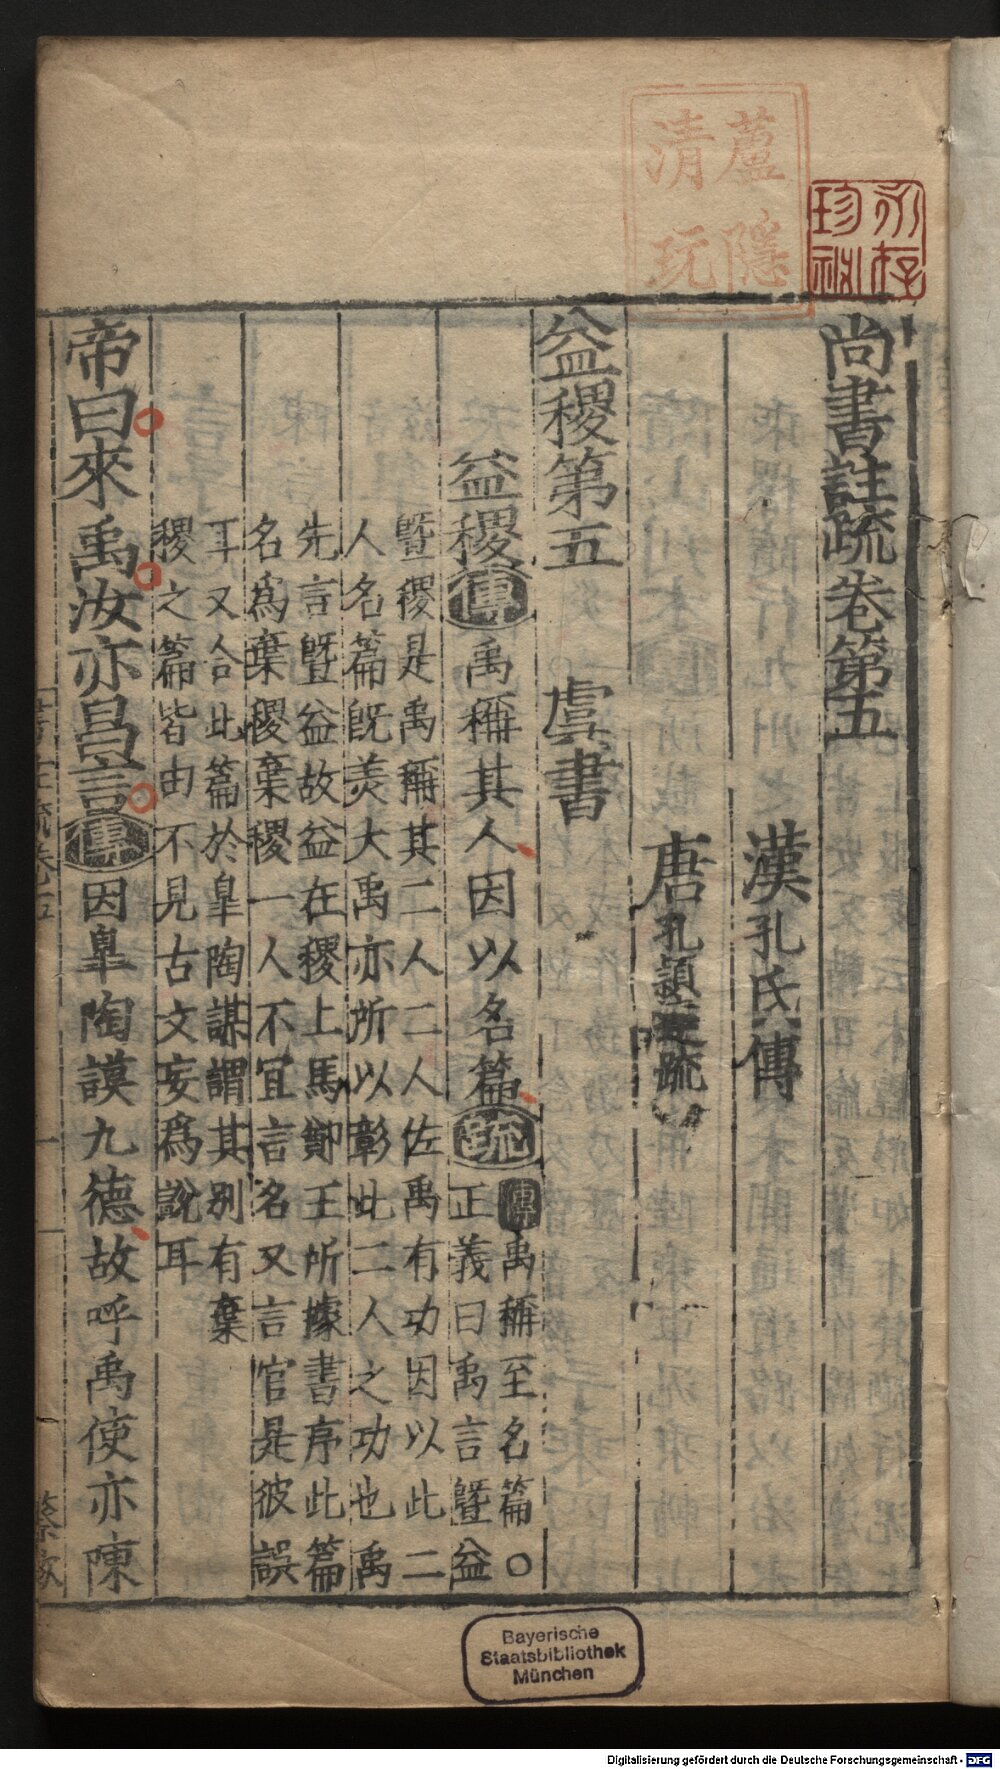 蘆隱
清玩
永存
珍祕
尚書註疏卷第五
漢孔氏傳
唐孔穎達疏
益稷第五 虞書
益稷傳禹稱其人因以名篇疏
傳禹稱至名篇○
正義曰禹言曁益
曁稷是禹稱其二人二人佐禹有功因以此二
人名篇旣美大禹亦所以彰此二人之功也禹
先言曁益故益在稷上馬鄭王所據書序此篇
名爲棄稷棄稷一人不宜言名又言官是彼誤
耳又合此篇於皐陶謀謂其別有棄
稷之篇皆由不見古文妄爲說耳
帝曰來禹汝亦昌言傳因皐陶謨九德故呼禹使亦陳
Bayerische
Staatsbibliothek
München
Digitalisierung gefördert durch die Deutsche Forschungsgemeinschaft - DFG